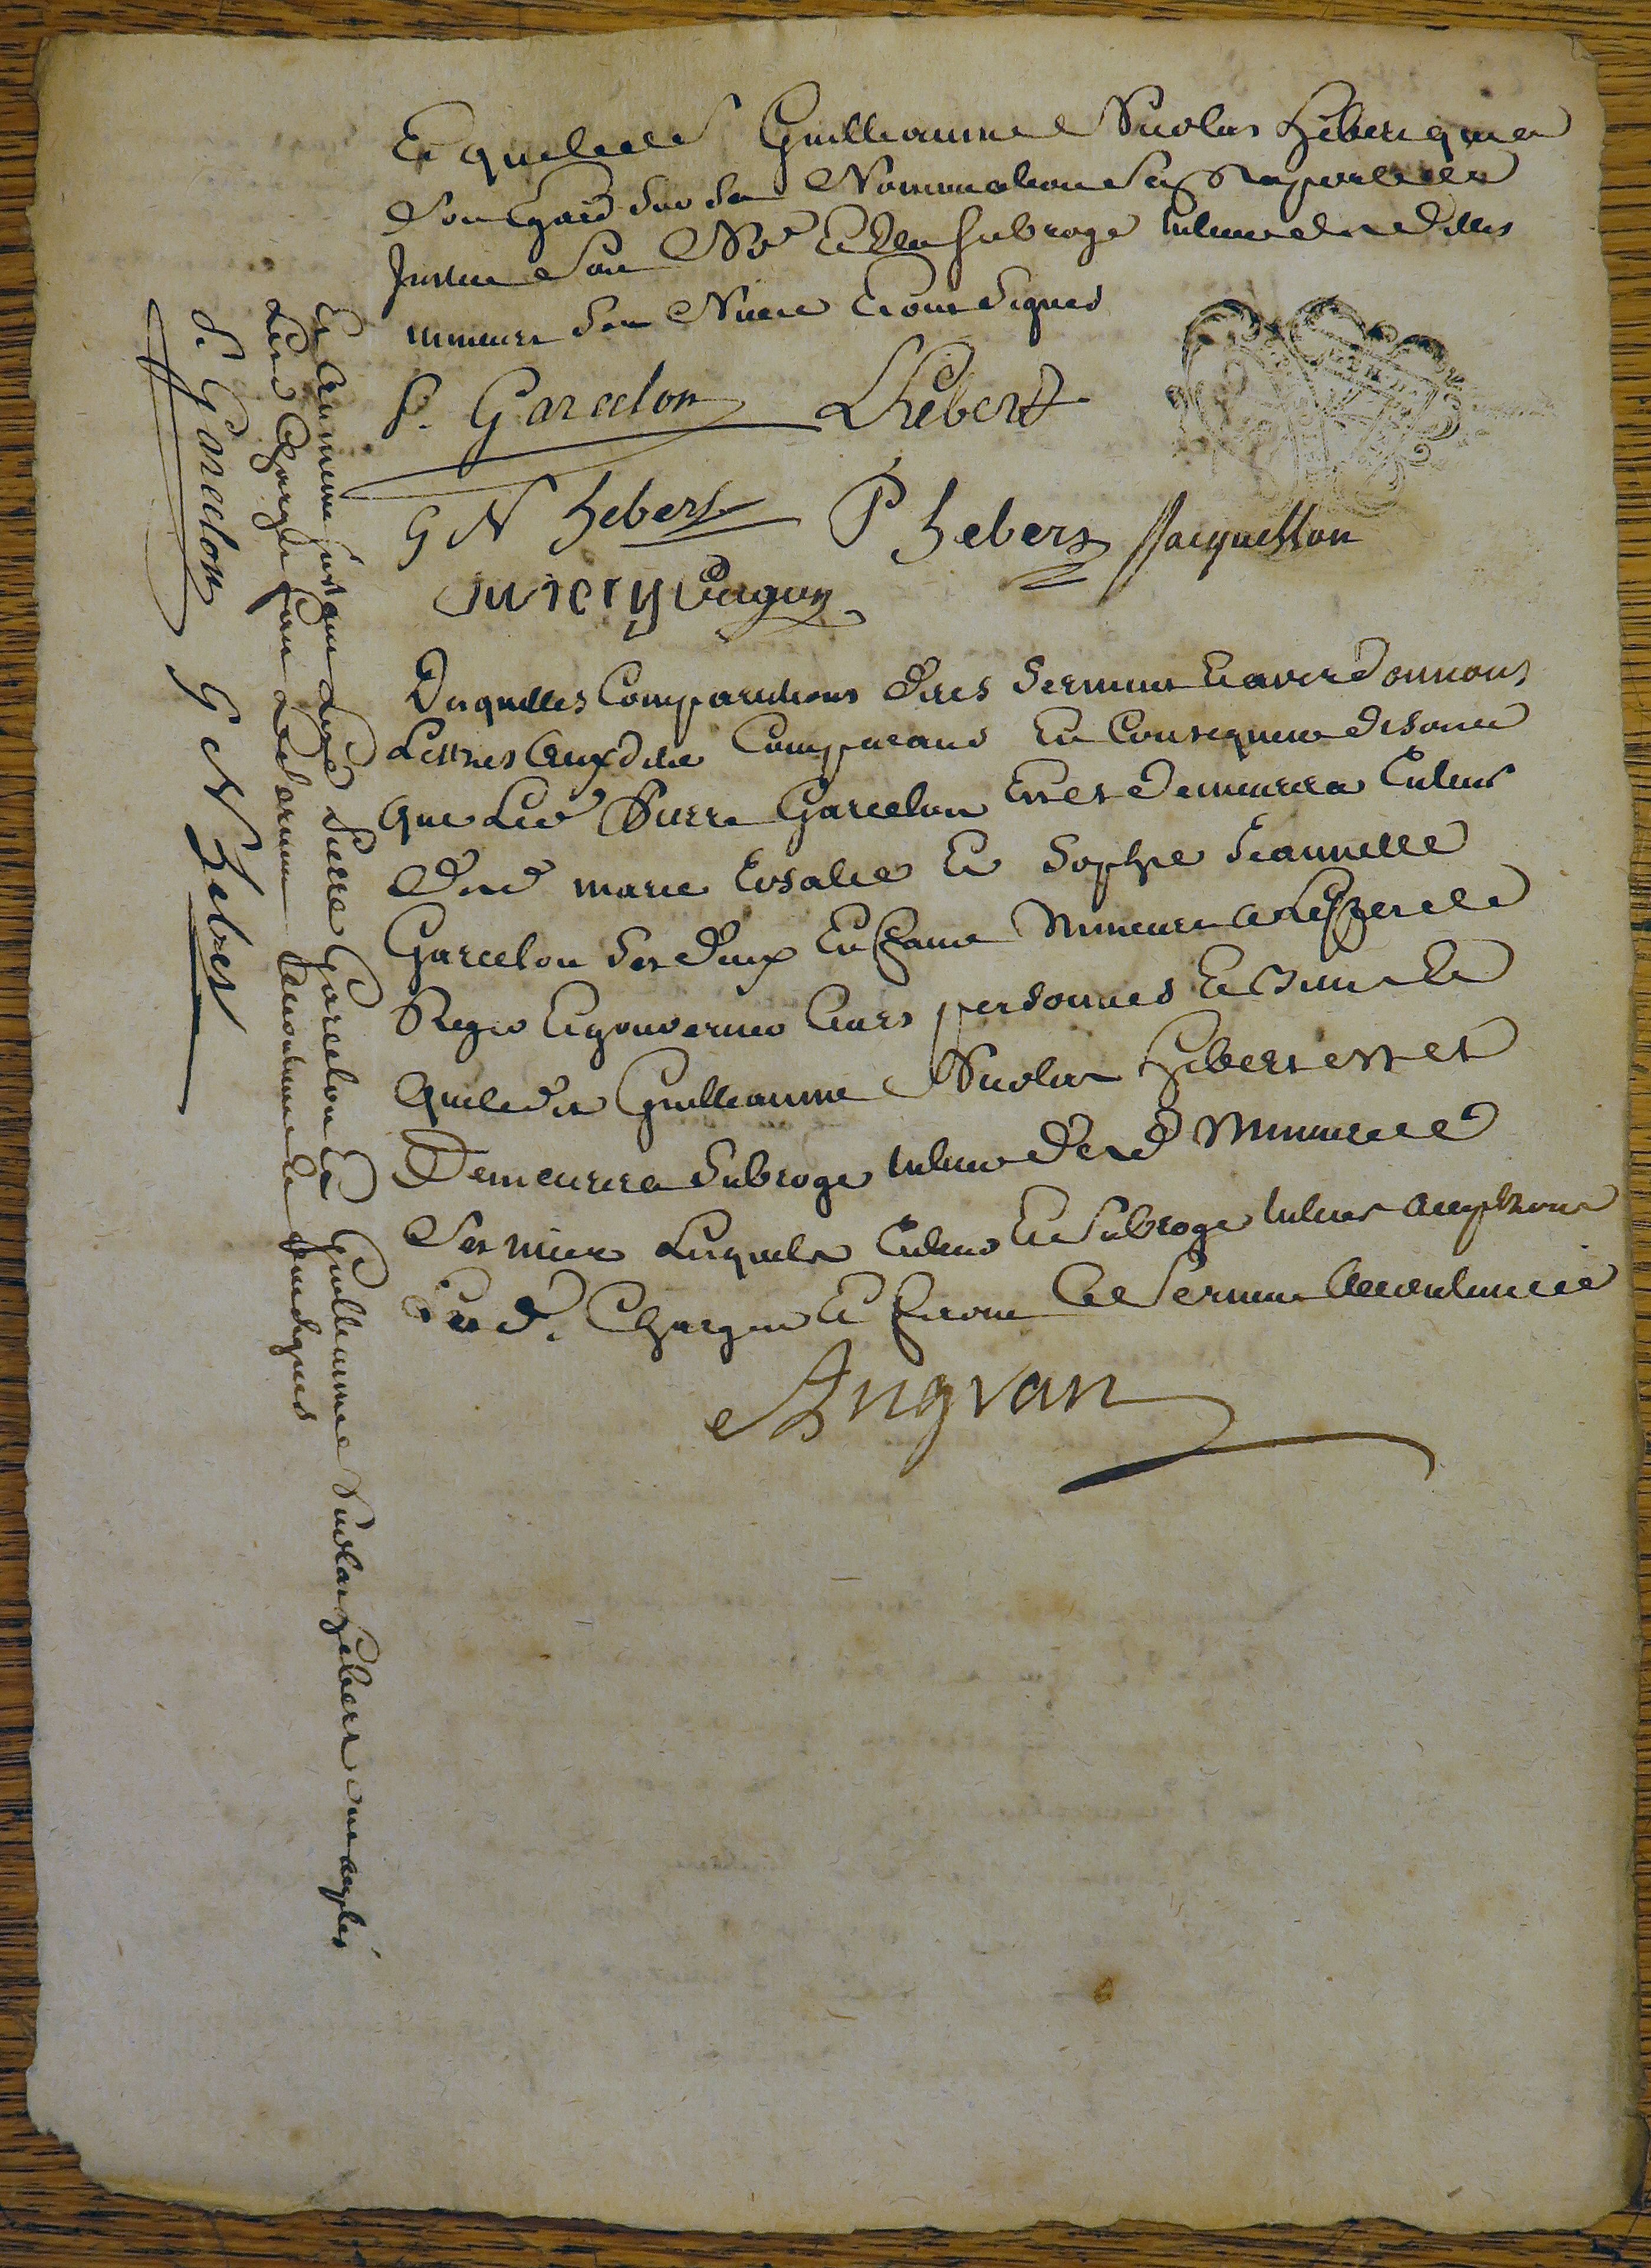 Et queledt Guilleaume Nicolas hébert qui a
Son Egard Sur Sa Nomination Sen Raporte a
Justice Soit No.é Et Elu Subrogé tuteur desdittes
mineures Ses Nieces Et ont Signés
P. Garcelon LhéberT
G N hebert P hebert Jacquotton
Desquelles Comparutions dires Serment Et avis donnons
Lettres Auxdits Comparans En Consequence disons
que Led Pierre Garcelon Est et demeurera tuteur
desd marie Rosalie Et Sophie Jeannette
Garcelon Ses deux Enfans Mineures a Leffet de
Regir Et gouverner leurs personnes Et Biens Et
queledit Guilleaume Nicolas hebert est et
Demeurera Subrogé tuteur desd Mineures
Ses nieces Lesquels tuteur Et Subrogé tuteur accepteront
Lesd. Charges Et feront le Serment accoutumé
Angran
Et a linstant Led Pierre Garcelon Et Guilleaume Nicolas hebert ont acceptés
Lesd Charges fait Le Serment accoutumé Et ont signés
P. Garcelon G N hebert